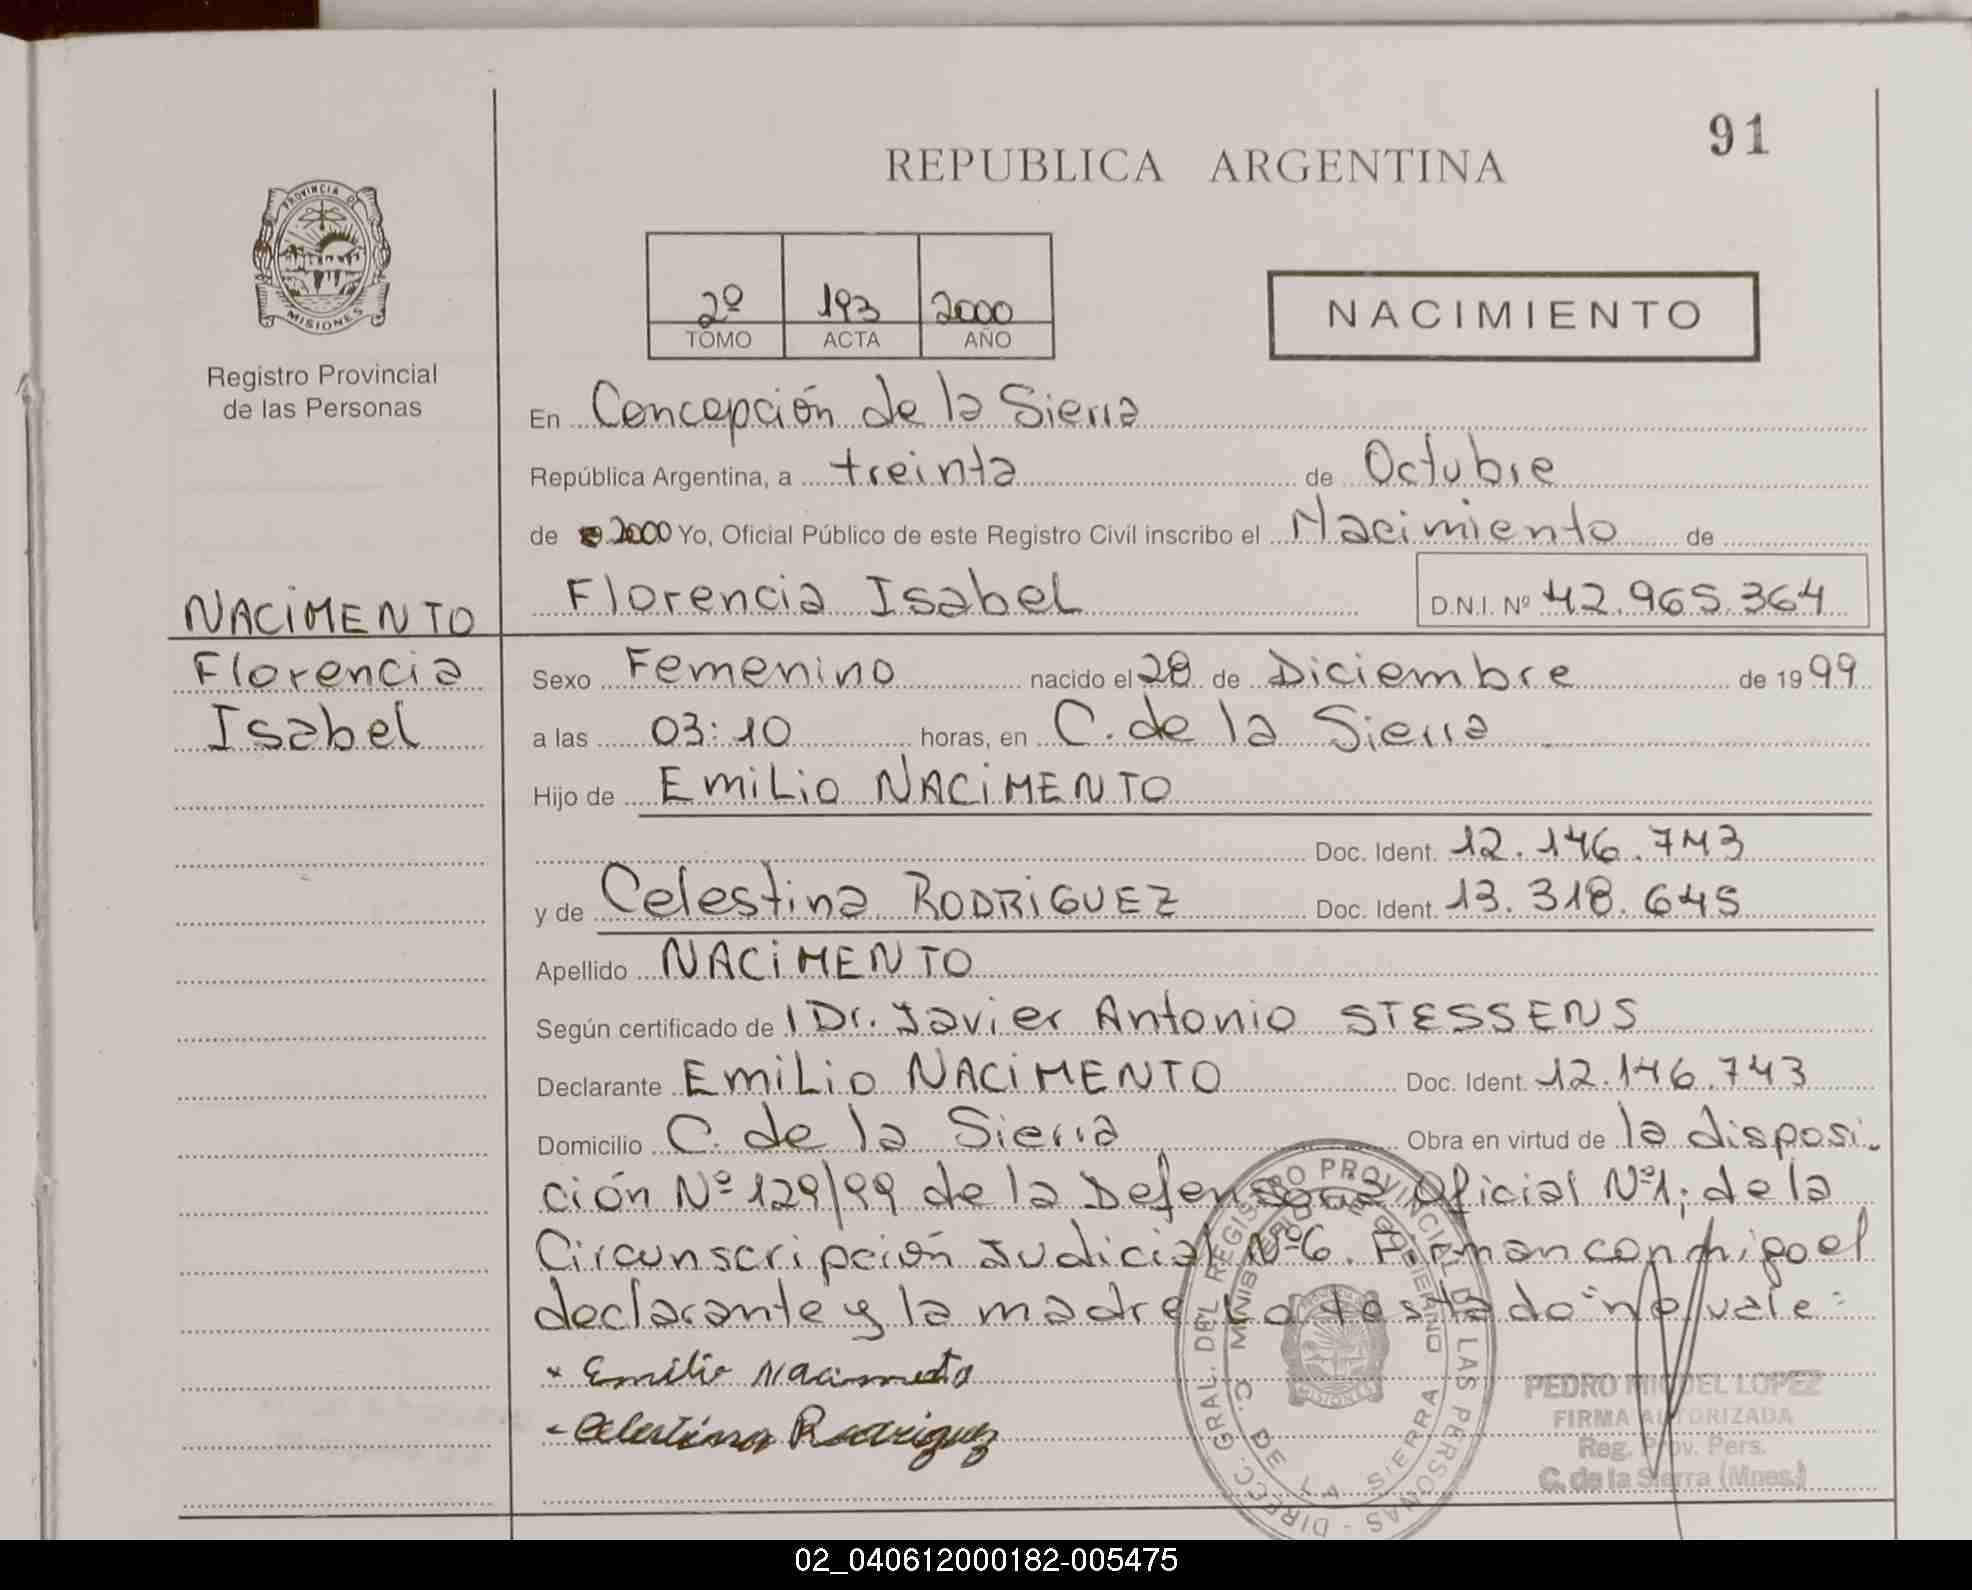 91
REPUBLICA ARGENTINA
PROVINCIA DE
MISIONES
Registro Provincial
de las Personas
2º 193 2000
TOMO ACTA AÑO
NACIMIENTO
En Concepción de la Sierra
República Argentina, a treinta de Octubre
de 2000 Yo, Oficial Público de este Registro Civil inscribo el Nacimiento de
Florencia Isabel D.N.I. Nº 42.965.364
NACIMENTO
Florencia
Isabel
Sexo Femenino nacido el 28 de Diciembre de 1999
a las 03:10 horas, en C. de la Sierra
Hijo de Emilio NACIMENTO
Doc. Ident. 12.146.743
y de Celestina RODRIGUEZ Doc. Ident. 13.318.645
Apellido NACIMENTO
Según certificado de l Dr. Javier Antonio STESSENS
Declarante Emilio NACIMENTO Doc. Ident. 12.146.743
Domicilio C. de la Sierra Obra en virtud de la disposi-
ción Nº 129/99 de la Defensoria Oficial Nº1; de la
Circunscripción Judicial Nº6. Firman conmigo el
declarante y la madre Lo testado "no vale"
Emilio Nacimento
Celestina Rodriguez
DIRECC. GRAL. DEL REGISTRO PROVINCIAL DE LAS PERSONAS
C. DE LA SIERRA
PEDRO MIGUEL LOPEZ
FIRMA AUTORIZADA
Reg. Prov. Pers.
C. de la Sierra (Mnes.)
02_040612000182-005475